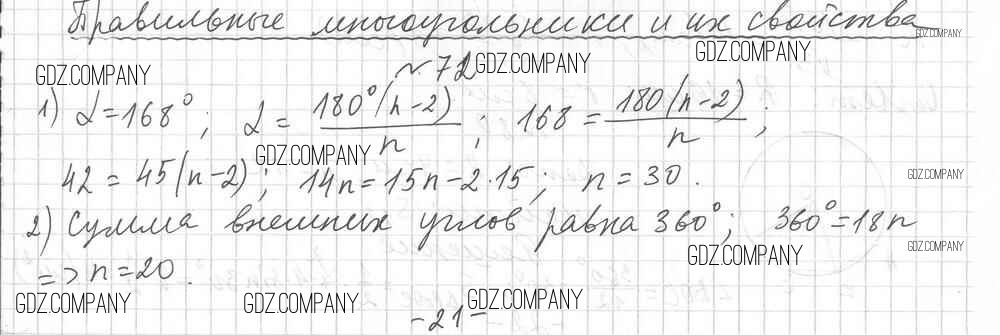 Правильные многоугольники и их свойства
GDZ.COMPANY
GDZ.COMPANY
GDZ.COMPANY
GDZ.COMPANY
№ 72
1) α = 168°; α = 180°(n-2)/n; 168 = 180(n-2)/n;
GDZ.COMPANY
GDZ.COMPANY
42 = 45(n-2); 14n = 15n - 2·15; n = 30.
2) Сумма внешних углов равна 360°; 360° = 18n
GDZ.COMPANY
GDZ.COMPANY
=> n = 20.
GDZ.COMPANY
GDZ.COMPANY
GDZ.COMPANY
-21-